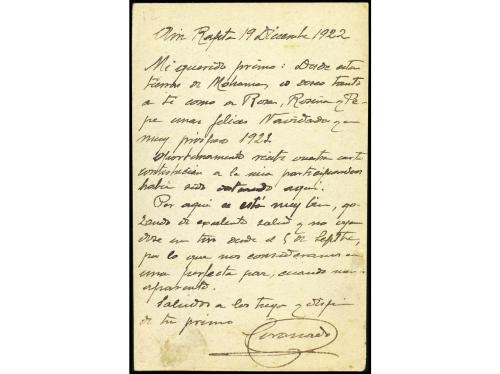 Ain Rapta 19 Diciembre 1922
Mi querido primo: Desde estas
tierras de Mahoma, os deseo tanto
a ti como a Rosa, Rosina y Pe-
pe unas felices Navidades y un
muy próspero 1923.
Oportunamente recibí vuestra carta
contestación a la mia participandoos
había sido destinado aquí.
Por aquí se está muy bien, go-
zando de excelente salud y no oyen
dose un tiro desde el 5 de Septbre,
por lo que nos consideramos en
una perfecta paz, cuando menos
aparente.
Saludos a los tuyos y
de tu primo
Coronado